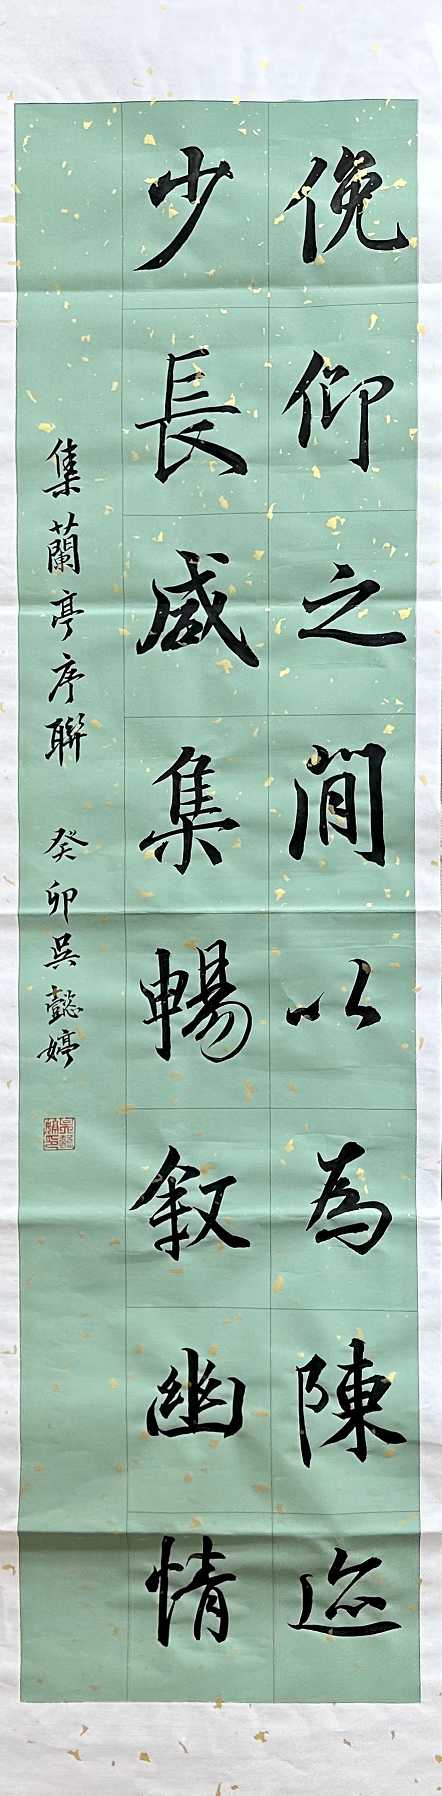 俛仰之閒以為陳迹
少長咸集暢敘幽情
集蘭亭序聯 癸卯吳懿婷